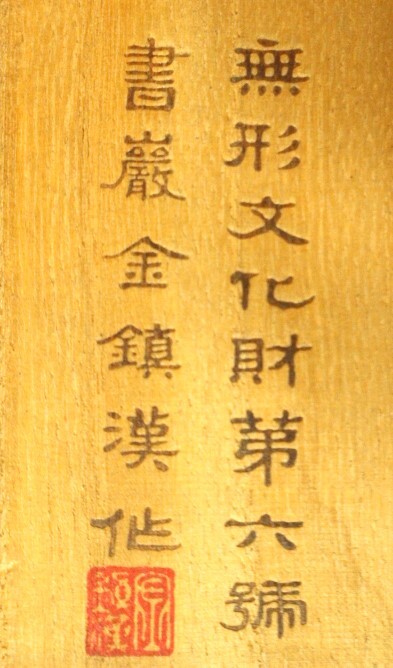 無形文化財第六號
書巖金鎮漢作